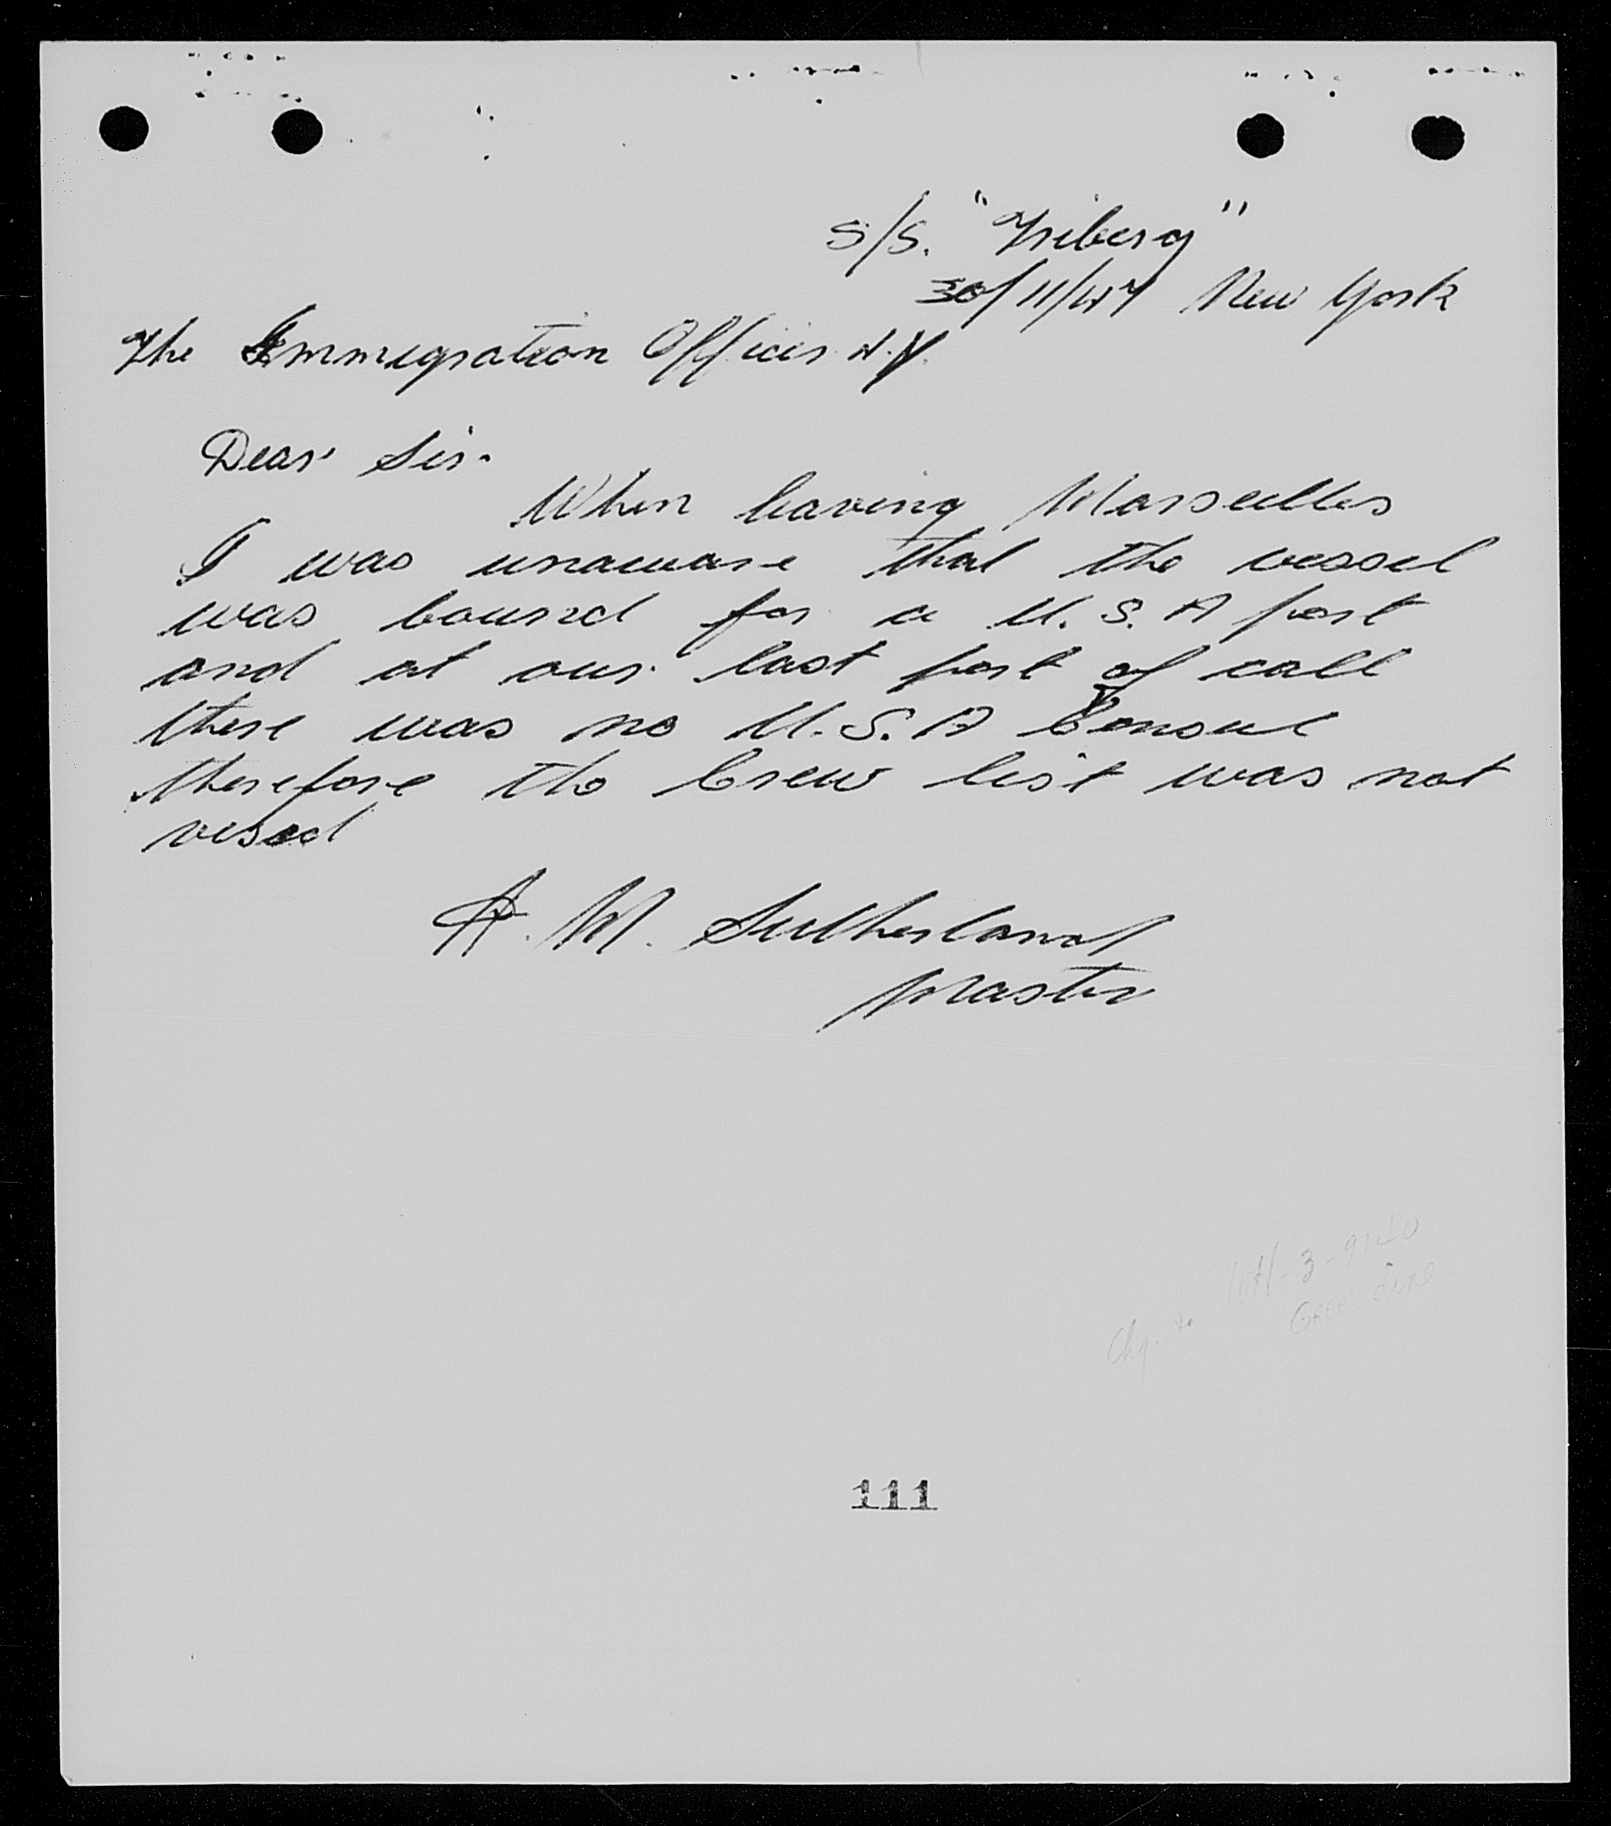 S/S. "Triberg"
30/11/47 New York
The Immigration Officer N.Y.
Dear Sir.
When leaving Marseilles
I was unaware that the vessel
was bound for a U.S.A port
and at our last port of call
there was no U.S.A Consul
therefore the Crew list was not
vised
A. M. Sutherland
Master
Chg. to
111